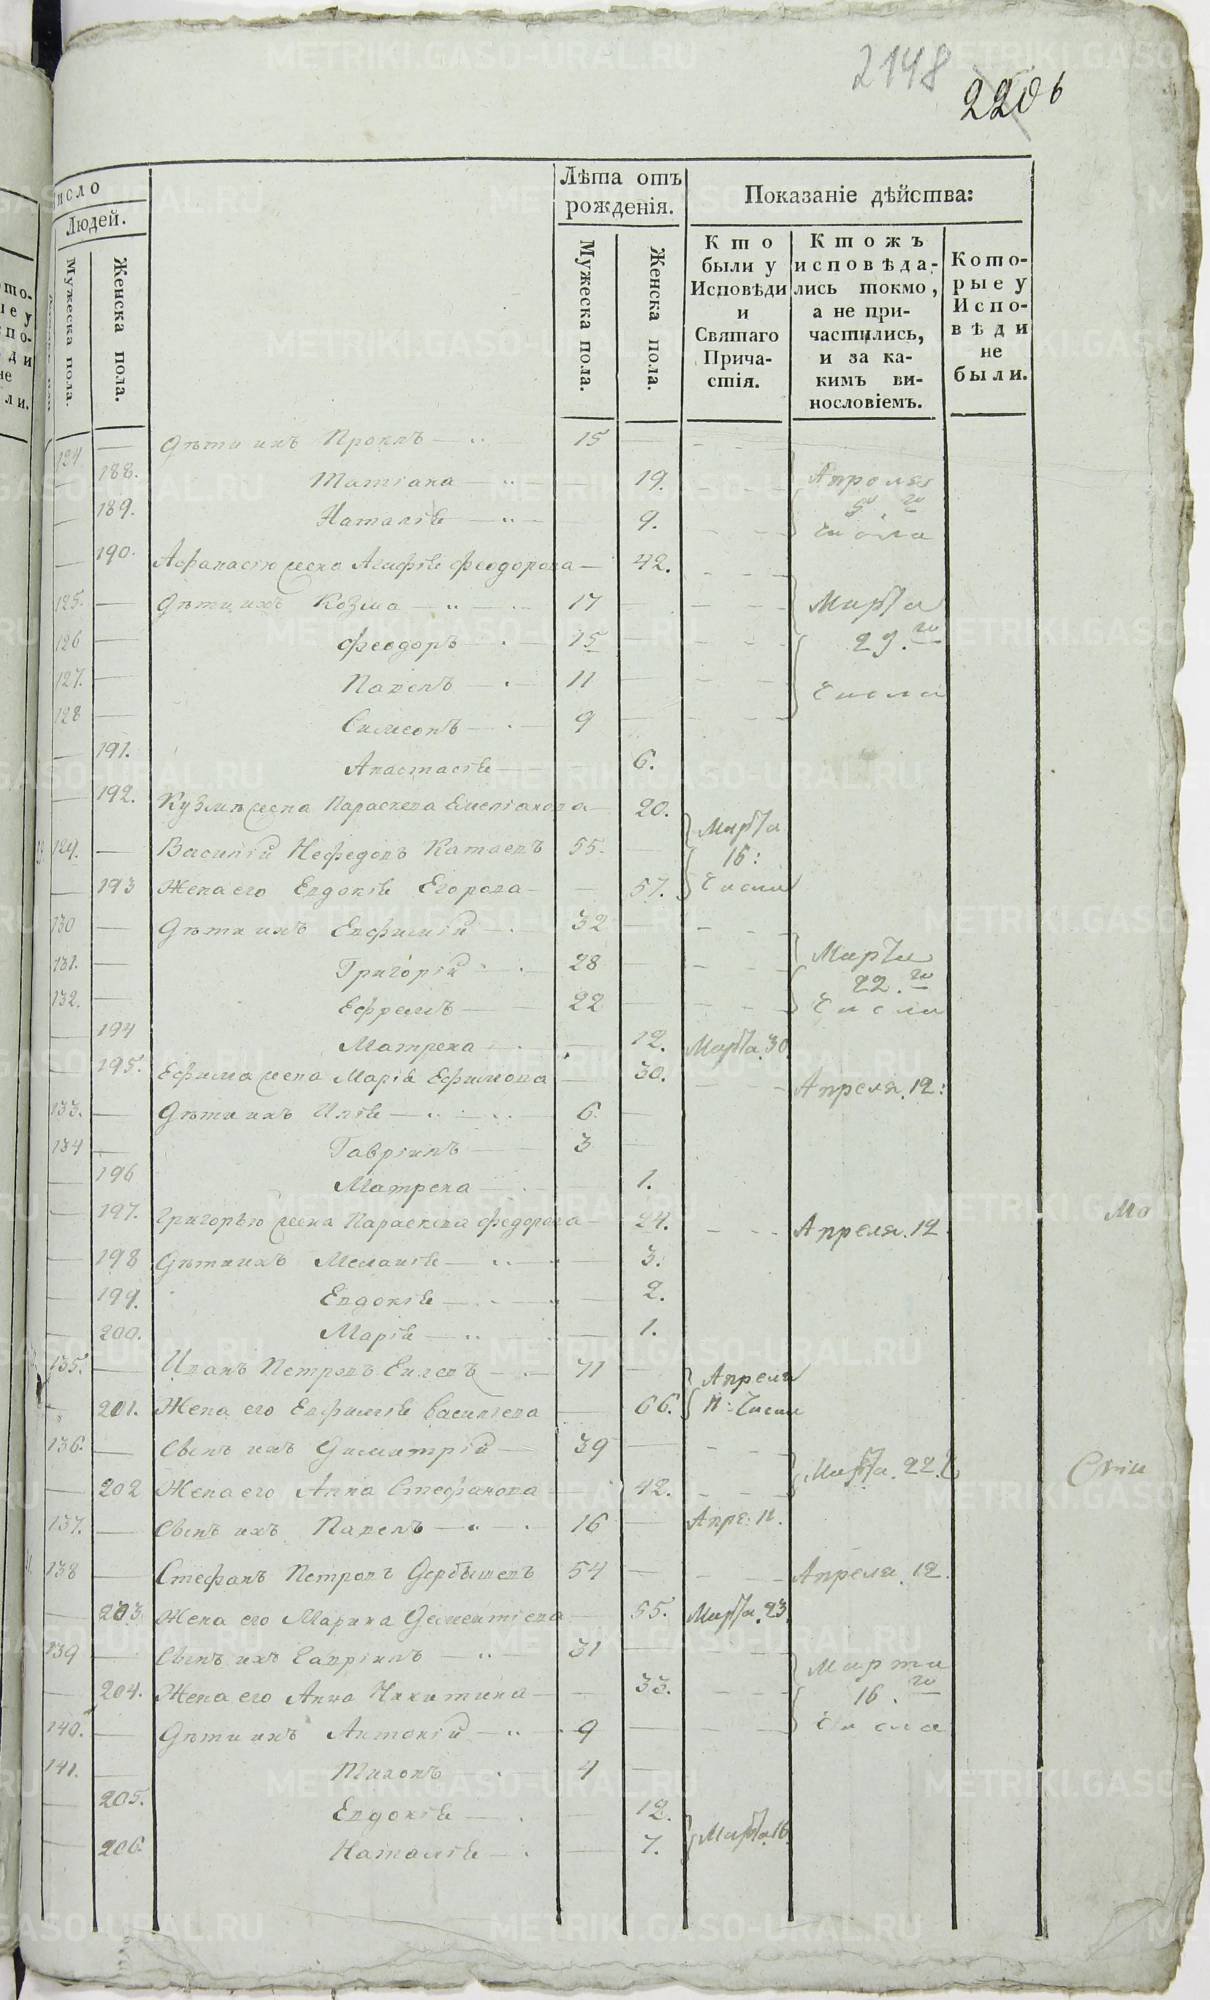 2148
220 б
число
Людей.
Мужеска пола.
Женска пола.
Лѣта отъ рожденія.
Мужеска пола.
Женска пола.
Показаніе дѣйства:
Кто были у Исповѣди и Святаго Причастія.
Ктожъ исповѣдались токмо, а не причастились, и за какимъ винословіемъ.
Которые у Исповѣди не были.
124 — Дѣти ихъ Проклъ — 15
— 188. Татіана — 19. Апреля
— 189. Наталіѣ — 9. 5го числа
— 190. Афанасію жена Агафіѣ Феодорова — 42.
125. — Дѣти ихъ Козма — 17 — Марта
126 — Феодоръ — 15 — 29.го
127. — Павелъ — 11 — числа
128 — Симеонъ — 9
— 191. Анастасіѣ — 6.
— 192. Кузмѣ жена Параскева Емеліанова — 20.
129. — Василій Нефедовъ Катаевъ 55. — Марта 16:
— 193 Жена его Евдокіѣ Егорова — 57. числа
130 — Дѣти ихъ Евфимій — 32
131. — Григорій — 28 — Марта
132. — Ефремъ — 22 — 22.го числа
— 194 Матрена — 12. Марта. 30.
— 195. Ефима жена Маріѣ Ефимова — 30. Апреля. 12:
133. — Дѣти ихъ Иліѣ — 6.
134 — Гавріилъ — 3
— 196 Матрена — 1.
— 197. Григорью жена Параскева Федорова — 24. Апреля. 12
— 198 Дѣти ихъ Меланіѣ — 3.
— 199. Евдокіѣ — 2.
— 200. Маріѣ — 1.
135. — Иванъ Петровъ — 71 — Апреля
— 201. Жена его Евфиміѣ Василіева — 66. 11: числа
136. — Сынъ ихъ Димитрій — 39
— 202 Жена его Анна Стефанова — 42. Марта. 22.
137. — Сынъ ихъ Павелъ — 16 — Апре: 11.
138 — Стефанъ Петровъ Дербышевъ 54 — Апреля. 12.
— 203 Жена его Марина Дементіева — 55. Марта. 23.
139 — Сынъ ихъ Гавріилъ — 31 — Марта
— 204. Жена его Анна Никитина — 33. 16.го
140. — Дѣти ихъ Антоній — 9 — числа
141. — Тихонъ — 4 —
— 205. Евдокіѣ — 12.
— 206. Наталіѣ — 7. Марта. 16